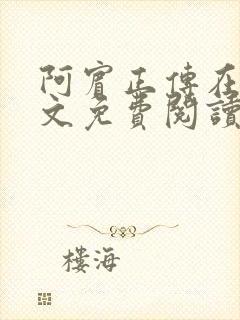 阿賓正傳在
文免費閱讀
樓海